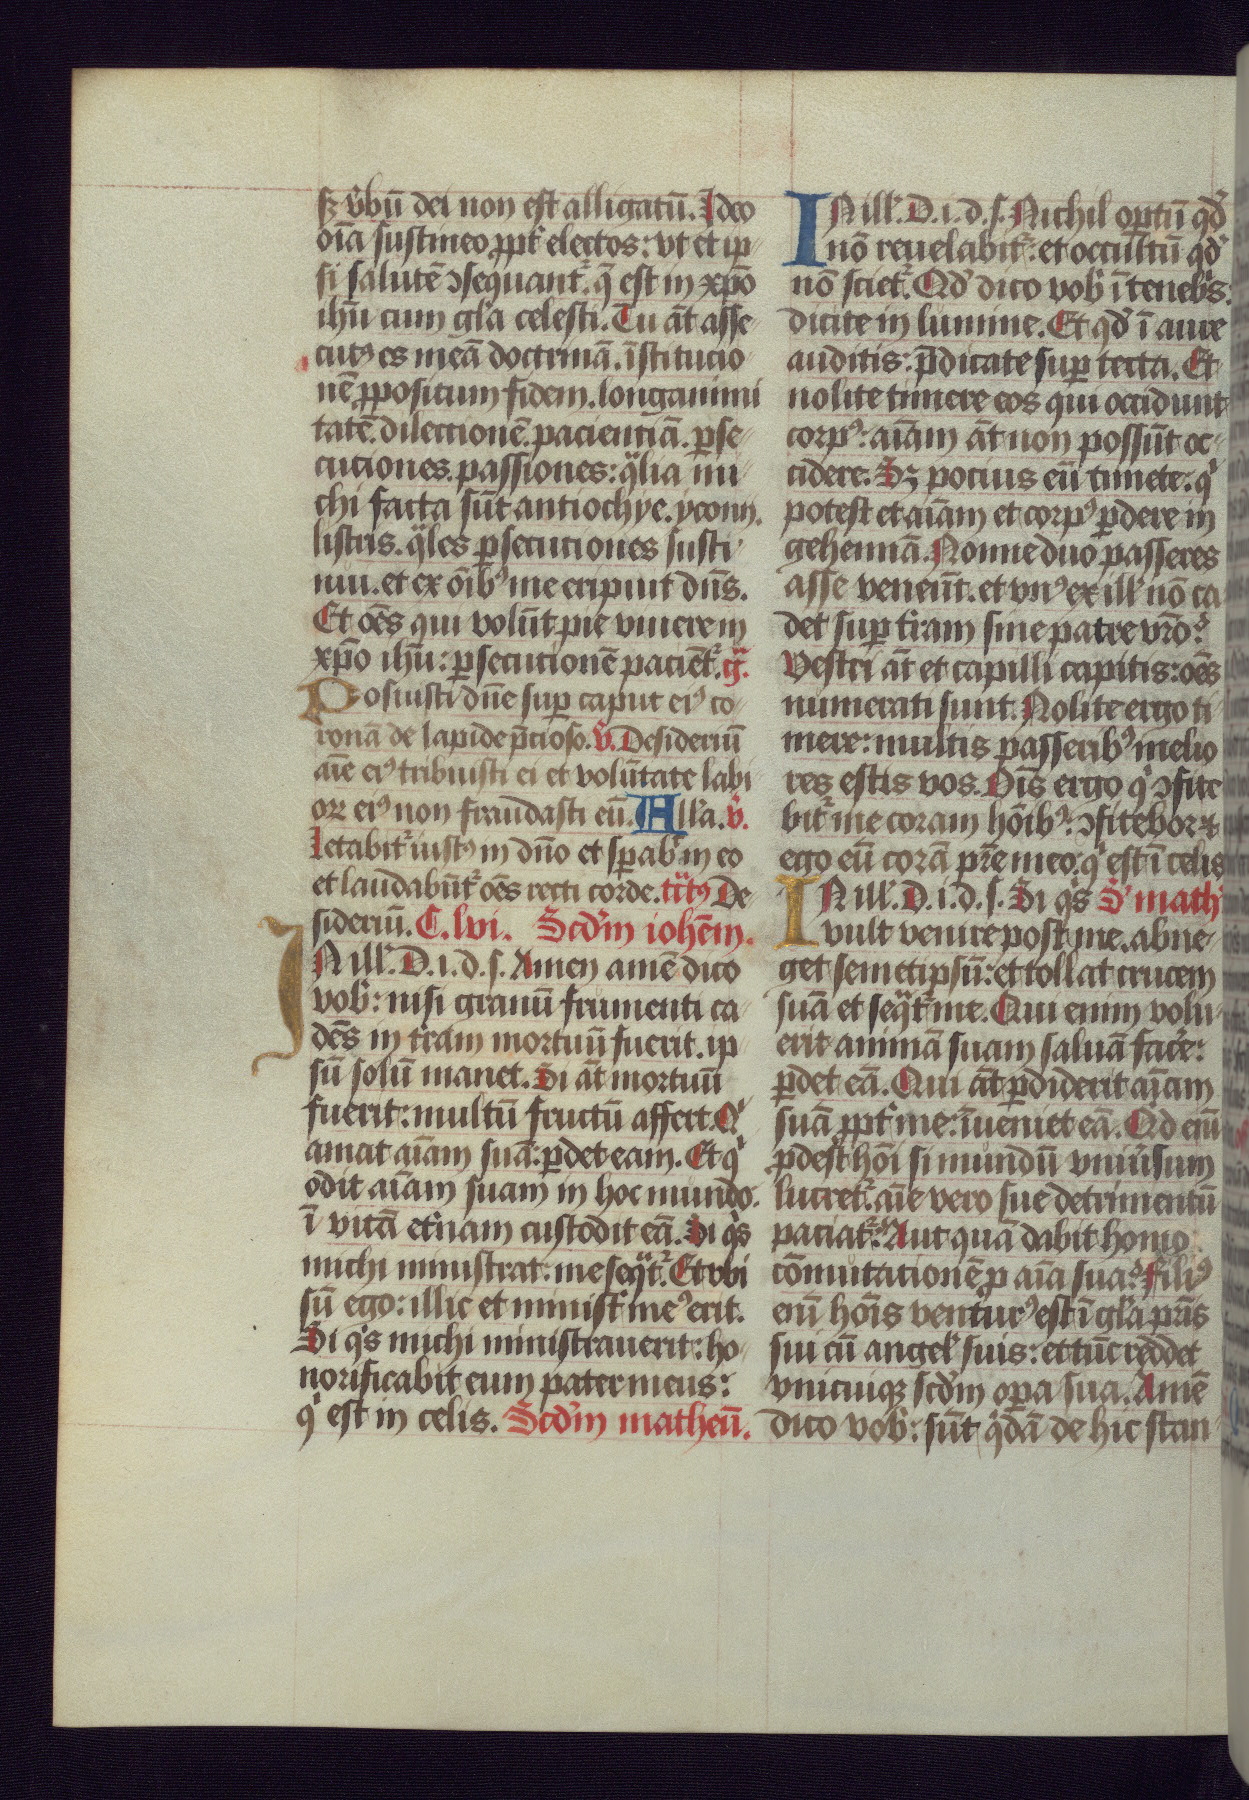 sꝫ v̓bū dei non est alligatū. Ideo
oīa sustineo ꝓpt̓ electos: vt et ip-
si salutē ↄsequant᷑. q̄ est in xp̄o
ihū cum gl̓a celesti. Tu āt asse-
cutꝰ es meā doctrinā. īstitucio-
nē ꝓpositum fidem. longanimi
tatē. dilectionē. pacienciā. ꝑse-
cuciones. passiones: qͣlia mi-
chi facta sūt antiochye. yconii.
listris. qͣles ꝑsecuciones susti-
nui. et ex oīb̓ me eripuit dn̄s.
Et oēs qui volūt pie viuere in
xp̄o ihū: ꝑsecutionē pacient᷑. gͣ.
Posuisti dn̄e suꝑ caput eiꝰ co-
ronā de lapide p̄cioso. v̓. Desideriū
aīe eiꝰ tribuisti ei et volūtate labi-
or eiꝰ non fraudasti eū. All̓a. v̓.
Letabit᷑ iustꝰ in dn̄o et sꝑab̓ in eo
et laudabūt᷑ oēs recti corde. tͣctꝰ De-
sideriū. C. lvi. Scd̓m iohēm.
IN ill̓. D. i. d. s. Amen amē dico
vob̓: nisi granū frumenti ca-
dēs in t̓ram mortuū fuerit. ip
sū solū manet. Si āt mortuū
fuerit: multū fructū affert. Qͥ
amat aīam suā: ꝑdet eam. Et qͥ
odit aīam suam in hoc mundo.
ī vitā et̓nam custodit eā. Si qͥs
michi ministrat: me seqͥt᷑. Et vbi
sū ego: illic et minist̓ meꝰ erit.
Si qͥs michi ministrauerit: ho-
norificabit eum pater meus:
qͥ est in celis. Scd̓m matheū.
IN ill̓. D. i. d. s. Nichil oꝑtū qd̓
nō reuelabit᷑: et occultū qd̓
nō sciet᷑. Qd̓ dico vob̓ ī teneb̓s:
dicite in lumine. Et qd̓ ī aure
auditis: p̄dicate suꝑ tecta. Et
nolite timere eos qui occidunt
corpꝰ: aīam āt non possūt oc-
cidere. Sꝫ pocius eū timete: qͥ
potest et aīam et corpꝰ ꝑdere in
gehennā. Nonne duo passeres
asse veneūt. et vnꝰ ex ill̓ nō ca
det suꝑ t̓ram sine patre vr̄o?
Vestri āt et capilli capitis: oēs
numerati sunt. Nolite ergo ti-
mere: multis passerib̓ melio
res estis vos. Oīs ergo qͥ ↄfite-
bit᷑ me coram hoībꝰ: ↄfitebor ⁊
ego eū corā pr̄e meo: qͥ est ī celis
IN ill̓. D. i. d. s. Si qͥs S̓ math̓
vult venire post me. abne-
get semetipsū: et tollat crucem
suā et seqͣt᷑ me. Qui enim volu-
erit animā suam saluā fac̓e:
ꝑdet eā. Qui āt ꝑdiderit aīam
suā ꝓpt̓ me: īueniet eā. Qd eīm
ꝓdest hōi si mundū vniūsum
lucret᷑. aīe vero sue detrimentū
paciat᷑? Aut quā dabit homo
cōmutationē ꝓ aīa sua? Filiꝰ
enī hōis venturꝰ est ī gl̓a pr̄is
sui cū angel̓ suis: et tūc reddet
vnicuiqꝫ scd̓m oꝑa sua. Amē
dico vob̓: sūt qͥdā de hic stan-